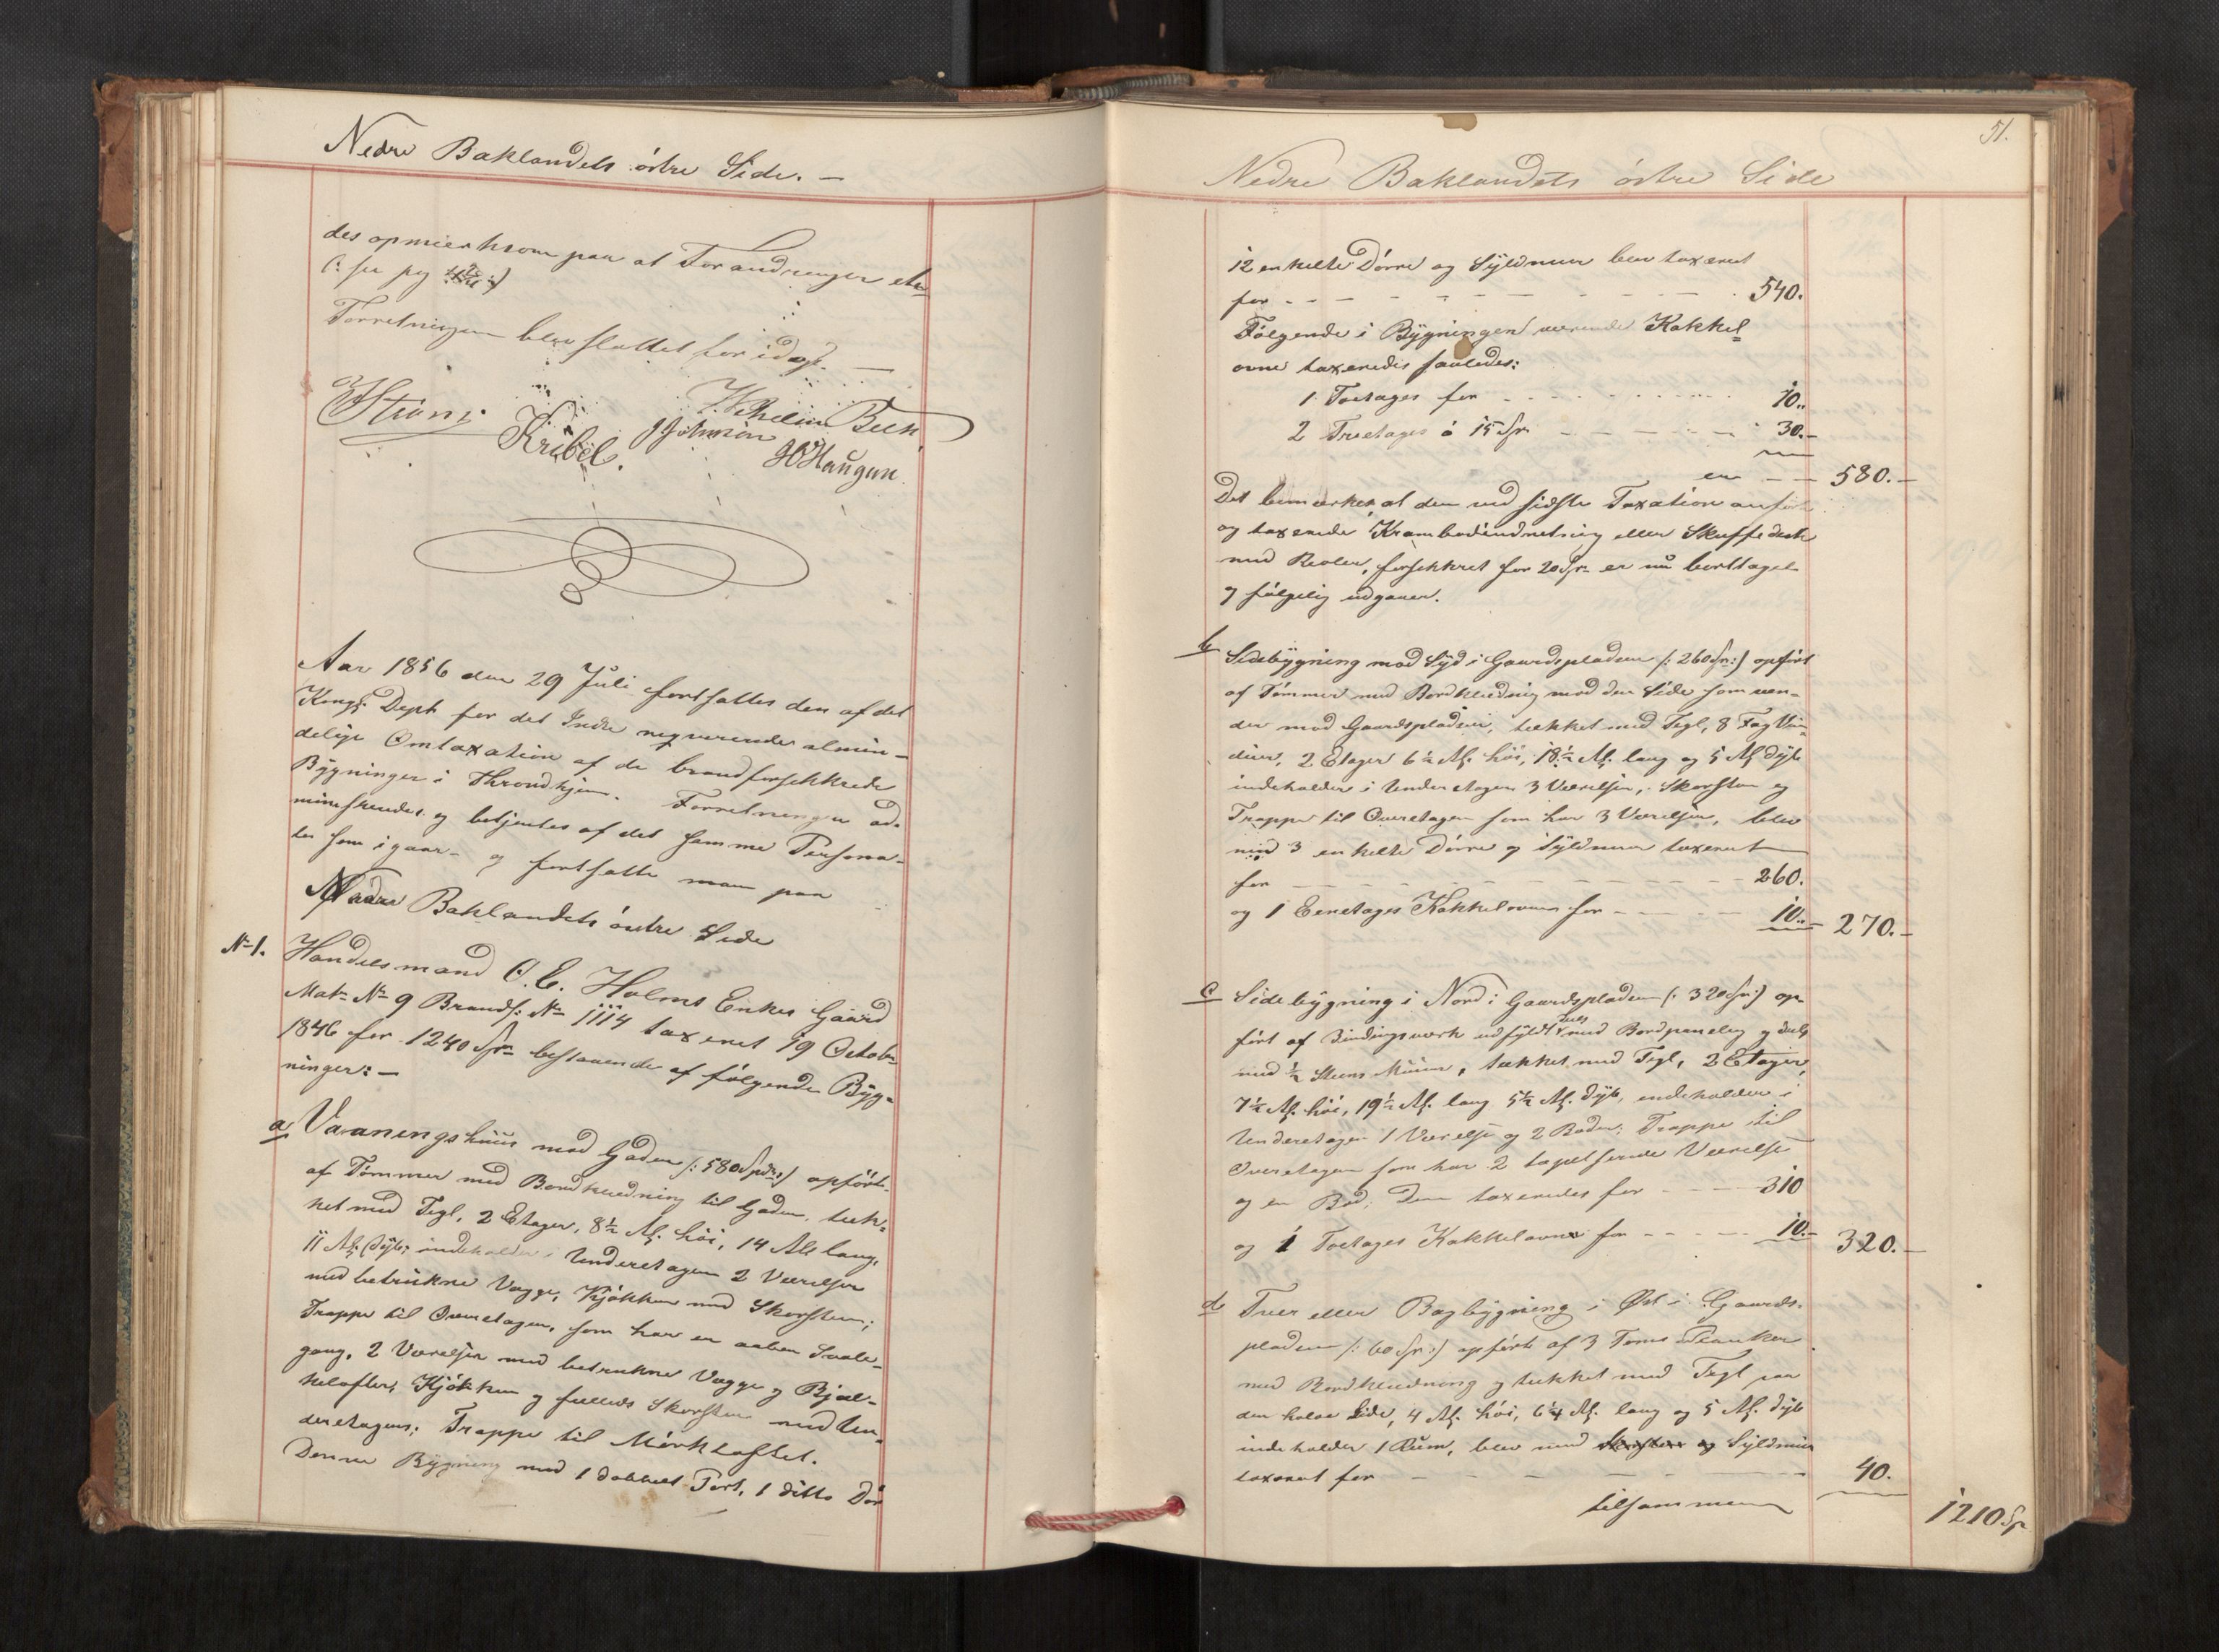 Nedre Baklandets østre Side. —
des opmærksom paa at Forandringer etc
Forretningen blev sluttet for idag. —
Strøm
Kribel.
J Johnsen
Vilhelm Beck
HOHaugen.
Aar 1856 den 29 Juli fortsattes den af det
Kongl: Dept for det Indre reqverende almin-
delige Omtaxation af de brandforsikkrede
Bygninger i Throndhjem. Forretningen ad-
ministreredes og betjentes af det samme Persona-
le som igaar – og fortsatte man paa
Nedre Baklandets østre Side
No 1. Handelsmand O. E. Holms Enkes Gaard
Matr No 9 Brandf: No 1114 taxeret 19 Octobr
1846 for 1240 Spd bestaaende af følgende Byg-
ninger: —
a, Vaaningshuus mod Gaden /: 580 Spd :/ opført
af Tømmer med Bordklædning til Gaden, tæk-
ket med Tegl, 2 Etager, 8½ Al. høi, 14 Al. lang,
11 Al. dyb; indeholder i Underetagen 2 Værelser
med betrukne Vægge, Kjøkken med Skorsteen;
Trappe til Overetagen, som har en aaben Svale-
gang, 2 Værelser med betrukne Vægge og Bjæl-
kelofter, Kjøkken og fælleds Skorsteen med Un-
deretagen; Trappe til Mørkloftet.
Denne Bygning med 1 dobbelt Port, 1 ditto Dør
51.
Nedre Baklandets østre Side
12 enkelte Dørre og Syldmuur blev taxeret
for - - - 540.
Følgende i Bygningen værende Kakkel-
ovne taxeredes saaledes:
1 Toetages for - - - 10..
2 Treetages á 15 Spd - - - 30.-
er - - 580.-
Det bemærkes, at den ved sidste Taxation anførte
og taxerede Krambodindretning eller Skuffedisk
med Reoler, forsikkret for 20 Spd er nu borttaget
og følgelig udgaaer.
b Sidebygning mod Syd i Gaardspladsen /: 260 Spd :/ opført
af Tømmer med Bordklædning mod den Side som ven-
der mod Gaardspladsen, tækket med Tegl, 8 Fag Vin-
duer, 2 Etager 6½ Al. høi, 18½ Al. lang og 5 Al. dyb
indeholder i Underetagen 3 Værelser, Skorsteen og
Trappe til Overetagen som har 3 Værelser, blev
med 3 enkelte Dørre og Syldmuur taxeret
for - - - 260.
og 1 Eenetages Kakkelovn for - - - 10.. 270.-
c Sidebygning i Nord i Gaardspladsen /: 320 Spd :/ op-
ført af Bindingsværk udfyldt deels med Bordpaneling og deels
med ½ Steens Muur, tækket med Tegl, 2 Etager,
7½ Al. høi, 19½ Al. lang 5½ Al. dyb, indeholder i
Underetagen 1 Værelse og 2 Boder; Trappe til
Overetagen som har 2 tapetserede Værelser
og en Bod; Den taxeredes for - - - 310
og 1 Toetages Kakkelovn for - - - 10.- 320.-
d Tvær eller Bagbygning i Øst i Gaards-
pladsen /: 60 Spd :/ opført af 3 Toms Planker
med Bordklædning og tækket med Tegl paa
den halve Side, 4 Al. høi, 6¼ Al. lang og 5 Al. dyb
indeholder 1 Rum, blev med Skorsteen og Syldmuur
taxeret for - - - 40.
tilsammen 1210 Sp